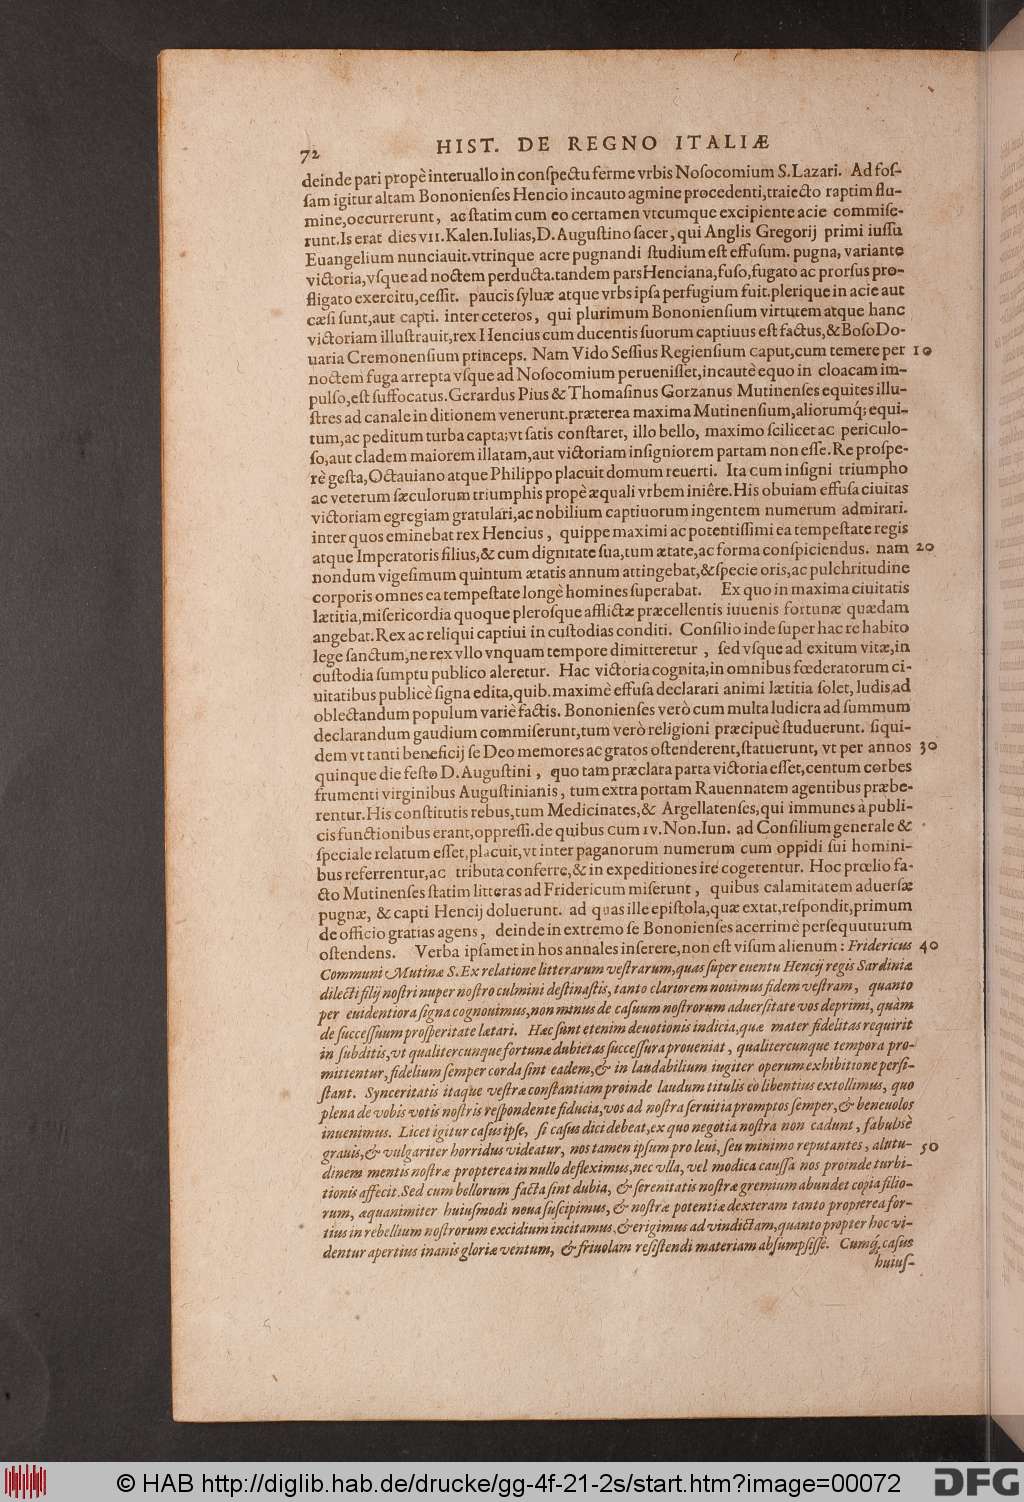 72 HIST. DE REGNO ITALIÆ
deinde pari propè interuallo in conſpectu ferme vrbis Noſocomium S. Lazari. Ad foſ-
ſam igitur altam Bononienſes Hencio incauto agmine procedenti, traiecto raptim flu-
mine, occurrerunt, ac ſtatim cum eo certamen vtcumque excipiente acie commiſe-
runt. Is erat dies VII. Kalen. Iulias, D. Auguſtino ſacer, qui Anglis Gregorij primi iuſſu
Euangelium nunciauit. vtrinque acre pugnandi ſtudium eſt effuſum. pugna, variante
victoria, vſque ad noctem perducta. tandem pars Henciana, fuſo, fugato ac prorſus pro-
fligato exercitu, ceſſit. paucis ſyluæ atque vrbs ipſa perfugium fuit. plerique in acie aut
cæſi ſunt, aut capti. inter ceteros, qui plurimum Bononienſium virtutem atque hanc
victoriam illuſtrauit, rex Hencius cum ducentis ſuorum captiuus eſt factus, & Boſo Do-
uaria Cremonenſium princeps. Nam Vido Seſſius Regienſium caput, cum temere per 10
noctem fuga arrepta vſque ad Noſocomium perueniſſet, incautè equo in cloacam im-
pulſo, eſt ſuffocatus. Gerardus Pius & Thomaſinus Gorzanus Mutinenſes equites illu-
ſtres ad canale in ditionem venerunt. præterea maxima Mutinenſium, aliorumq́; equi-
tum, ac peditum turba capta; vt ſatis conſtaret, illo bello, maximo ſcilicet ac periculo-
ſo, aut cladem maiorem illatam, aut victoriam inſigniorem partam non eſſe. Re proſpe-
rè geſta, Octauiano atque Philippo placuit domum reuerti. Ita cum inſigni triumpho
ac veterum ſæculorum triumphis propè æquali vrbem iniêre. His obuiam effuſa ciuitas
victoriam egregiam gratulari, ac nobilium captiuorum ingentem numerum admirari.
inter quos eminebat rex Hencius, quippe maximi ac potentiſſimi ea tempeſtate regis
atque Imperatoris filius, & cum dignitate ſua, tum ætate, ac forma conſpiciendus. nam 20
nondum vigeſimum quintum ætatis annum attingebat, & ſpecie oris, ac pulchritudine
corporis omnes ea tempeſtate longè homines ſuperabat. Ex quo in maxima ciuitatis
lætitia, miſericordia quoque pleroſque afflictæ præcellentis iuuenis fortunæ quædam
angebat. Rex ac reliqui captiui in cuſtodias conditi. Conſilio inde ſuper hac re habito
lege ſanctum, ne rex vllo vnquam tempore dimitteretur, ſed vſque ad exitum vitæ, in
cuſtodia ſumptu publico aleretur. Hac victoria cognita, in omnibus fœderatorum ci-
uitatibus publicè ſigna edita, quib. maximè effuſa declarari animi lætitia ſolet, ludis, ad
oblectandum populum variè factis. Bononienſes verò cum multa ludicra ad ſummum
declarandum gaudium commiſerunt, tum verò religioni præcipuè ſtuduerunt. ſiqui-
dem vt tanti beneficij ſe Deo memores ac gratos oſtenderent, ſtatuerunt, vt per annos 30
quinque die feſto D. Auguſtini, quo tam præclara parta victoria eſſet, centum corbes
frumenti virginibus Auguſtinianis, tum extra portam Rauennatem agentibus præbe-
rentur. His conſtitutis rebus, tum Medicinates, & Argellatenſes, qui immunes à publi-
cis functionibus erant, oppreſſi. de quibus cum IV. Non. Iun. ad Conſilium generale &
ſpeciale relatum eſſet, placuit, vt inter paganorum numerum cum oppidi ſui homini-
bus referrentur, ac tributa conferre, & in expeditiones ire cogerentur. Hoc prœlio fa-
cto Mutinenſes ſtatim litteras ad Fridericum miſerunt, quibus calamitatem aduerſæ
pugnæ, & capti Hencij doluerunt. ad quas ille epiſtola, quæ extat, reſpondit, primum
de officio gratias agens, deinde in extremo ſe Bononienſes acerrimè perſequuturum
oſtendens. Verba ipſamet in hos annales inſerere, non eſt viſum alienum: Fridericus 40
Communi Mutinæ S. Ex relatione litterarum veſtrarum, quas ſuper euentu Hencij regis Sardiniæ
dilecti filij noſtri nuper noſtro culmini deſtinaſtis, tanto clariorem nouimus fidem veſtram, quanto
per euidentiora ſigna cognouimus, non minus de caſuum noſtrorum aduerſitate vos deprimi, quàm
de ſucceſſuum proſperitate lætari. Hæc ſunt etenim deuotionis indicia, quæ mater fidelitas requirit
in ſubditis, vt qualitercunque fortunæ dubietas ſucceſſura proueniat, qualitercunque tempora pro-
mittentur, fidelium ſemper corda ſint eadem, & in laudabilium iugiter operum exhibitione perſi-
ſtant. Synceritatis itaque veſtræ conſtantiam proinde laudum titulis eo libentius extollimus, quo
plena de vobis votis noſtris reſpondente fiducia, vos ad noſtra ſeruitia promptos ſemper, & beneuolos
inuenimus. Licet igitur caſus ipſe, ſi caſus dici debeat, ex quo negotia noſtra non cadunt, fabulſè
grauis, & vulgariter horridus videatur, nos tamen ipſum pro leui, ſeu minimo reputantes, altitu- 50
dinem mentis noſtræ propterea in nullo defleximus, nec vlla, vel modica cauſſa nos proinde turbi-
tionis affecit. Sed cum bellorum facta ſint dubia, & ſerenitatis noſtræ gremium abundet copia filio-
rum, æquanimiter huiuſmodi noua ſuſcipimus, & noſtræ potentiæ dexteram tanto propterea for-
tius in rebellium noſtrorum excidium incitamus, & erigimus ad vindictam, quanto propter hoc vi-
dentur apertius inanis gloriæ ventum, & friuolam reſiſtendi materiam abſumpſiſſe. Cumq́, caſus
huiuſ-
© HAB http://diglib.hab.de/drucke/gg-4f-21-2s/start.htm?image=00072
DFG